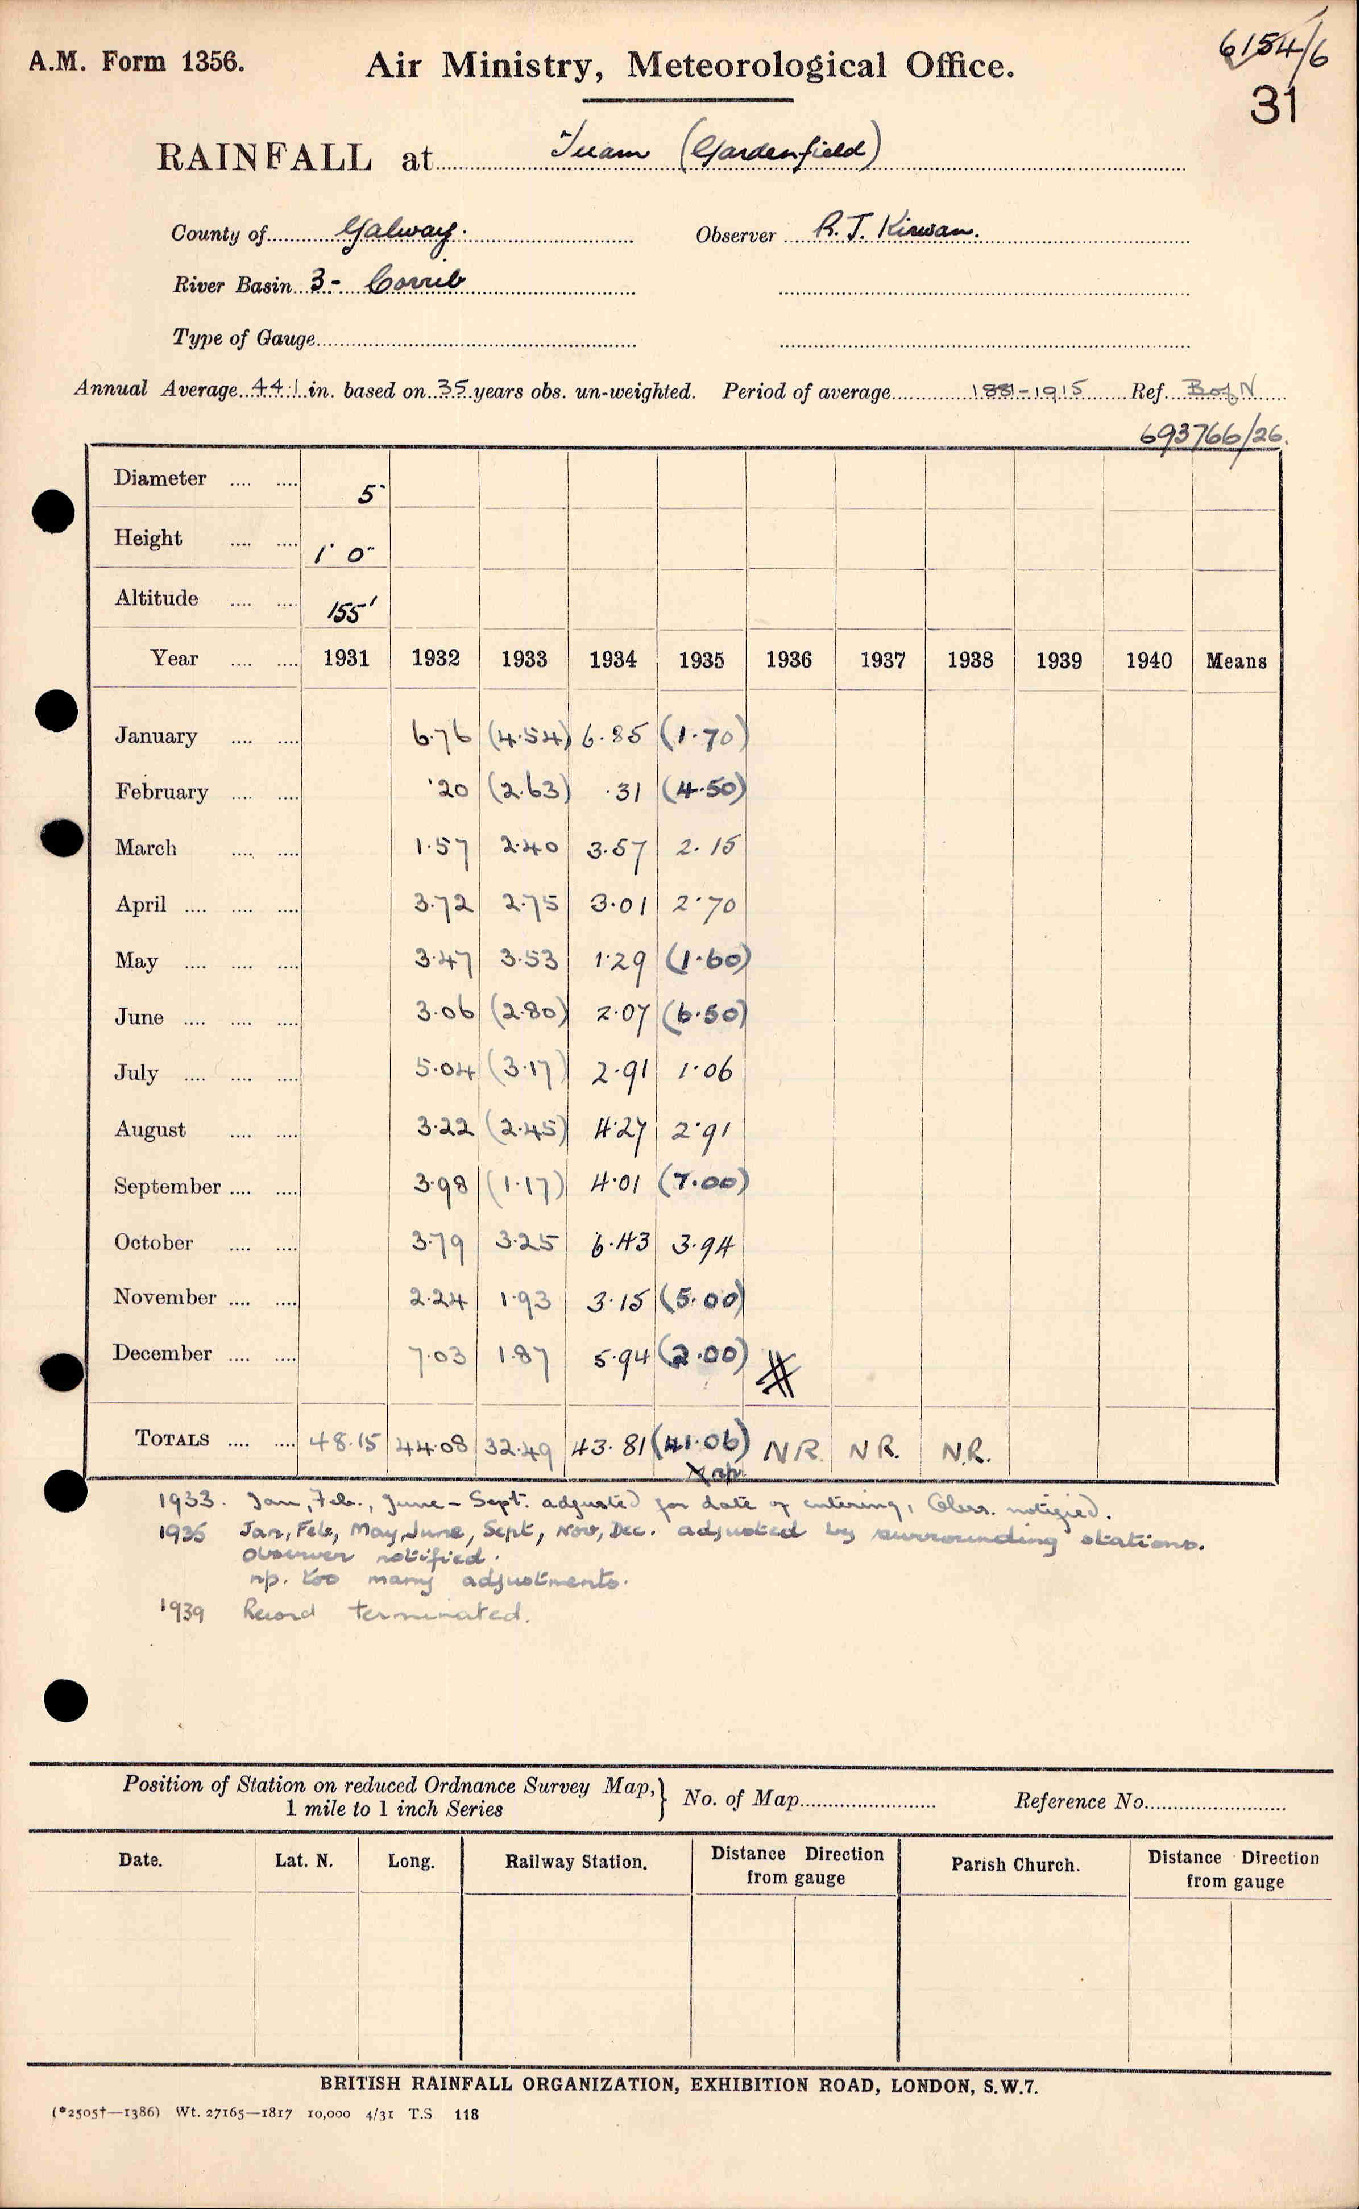 A.M. Form 1356.
Air Ministry, Meteorological Office.
6154/6
31
RAINFALL at Tuam (Gardenfield)
County of Galway. Observer R. J. Kirwan.
River Basin 3 - Corrib
Type of Gauge
Annual Average 44.1 in. based on 35 years obs. un-weighted. Period of average 1881-1915 Ref. B of N
693766/26.
Diameter 5"
Height 1' 0"
Altitude 155'
Year 1931 1932 1933 1934 1935 1936 1937 1938 1939 1940 Means
January 6.76 (4.54) 6.85 (1.70)
February .20 (2.63) .31 (4.50)
March 1.57 2.40 3.57 2.15
April 3.72 2.75 3.01 2.70
May 3.47 3.53 1.29 (1.60)
June 3.06 (2.80) 2.07 (6.50)
July 5.04 (3.17) 2.91 1.06
August 3.22 (2.45) 4.27 2.91
September 3.98 (1.17) 4.01 (7.00)
October 3.79 3.25 6.43 3.94
November 2.24 1.93 3.15 (5.00)
December 7.03 1.87 5.94 (2.00)
TOTALS 48.15 44.08 32.49 43.81 (41.06) N R. N R. N.R.
np.
1933. Jan, Feb., June - Sept. adjusted for date of entering, Obsr. notified.
1935 Jan, Feb, May, June, Sept, Nov, Dec. adjusted by surrounding stations.
Observer notified.
np. too many adjustments.
1939 Record terminated.
Position of Station on reduced Ordnance Survey Map, 1 mile to 1 inch Series } No. of Map Reference No.
Date. Lat. N. Long. Railway Station. Distance Direction from gauge Parish Church. Distance Direction from gauge
BRITISH RAINFALL ORGANIZATION, EXHIBITION ROAD, LONDON, S.W.7.
(*2505†—1386) Wt. 27165—1817 10,000 4/31 T.S 118